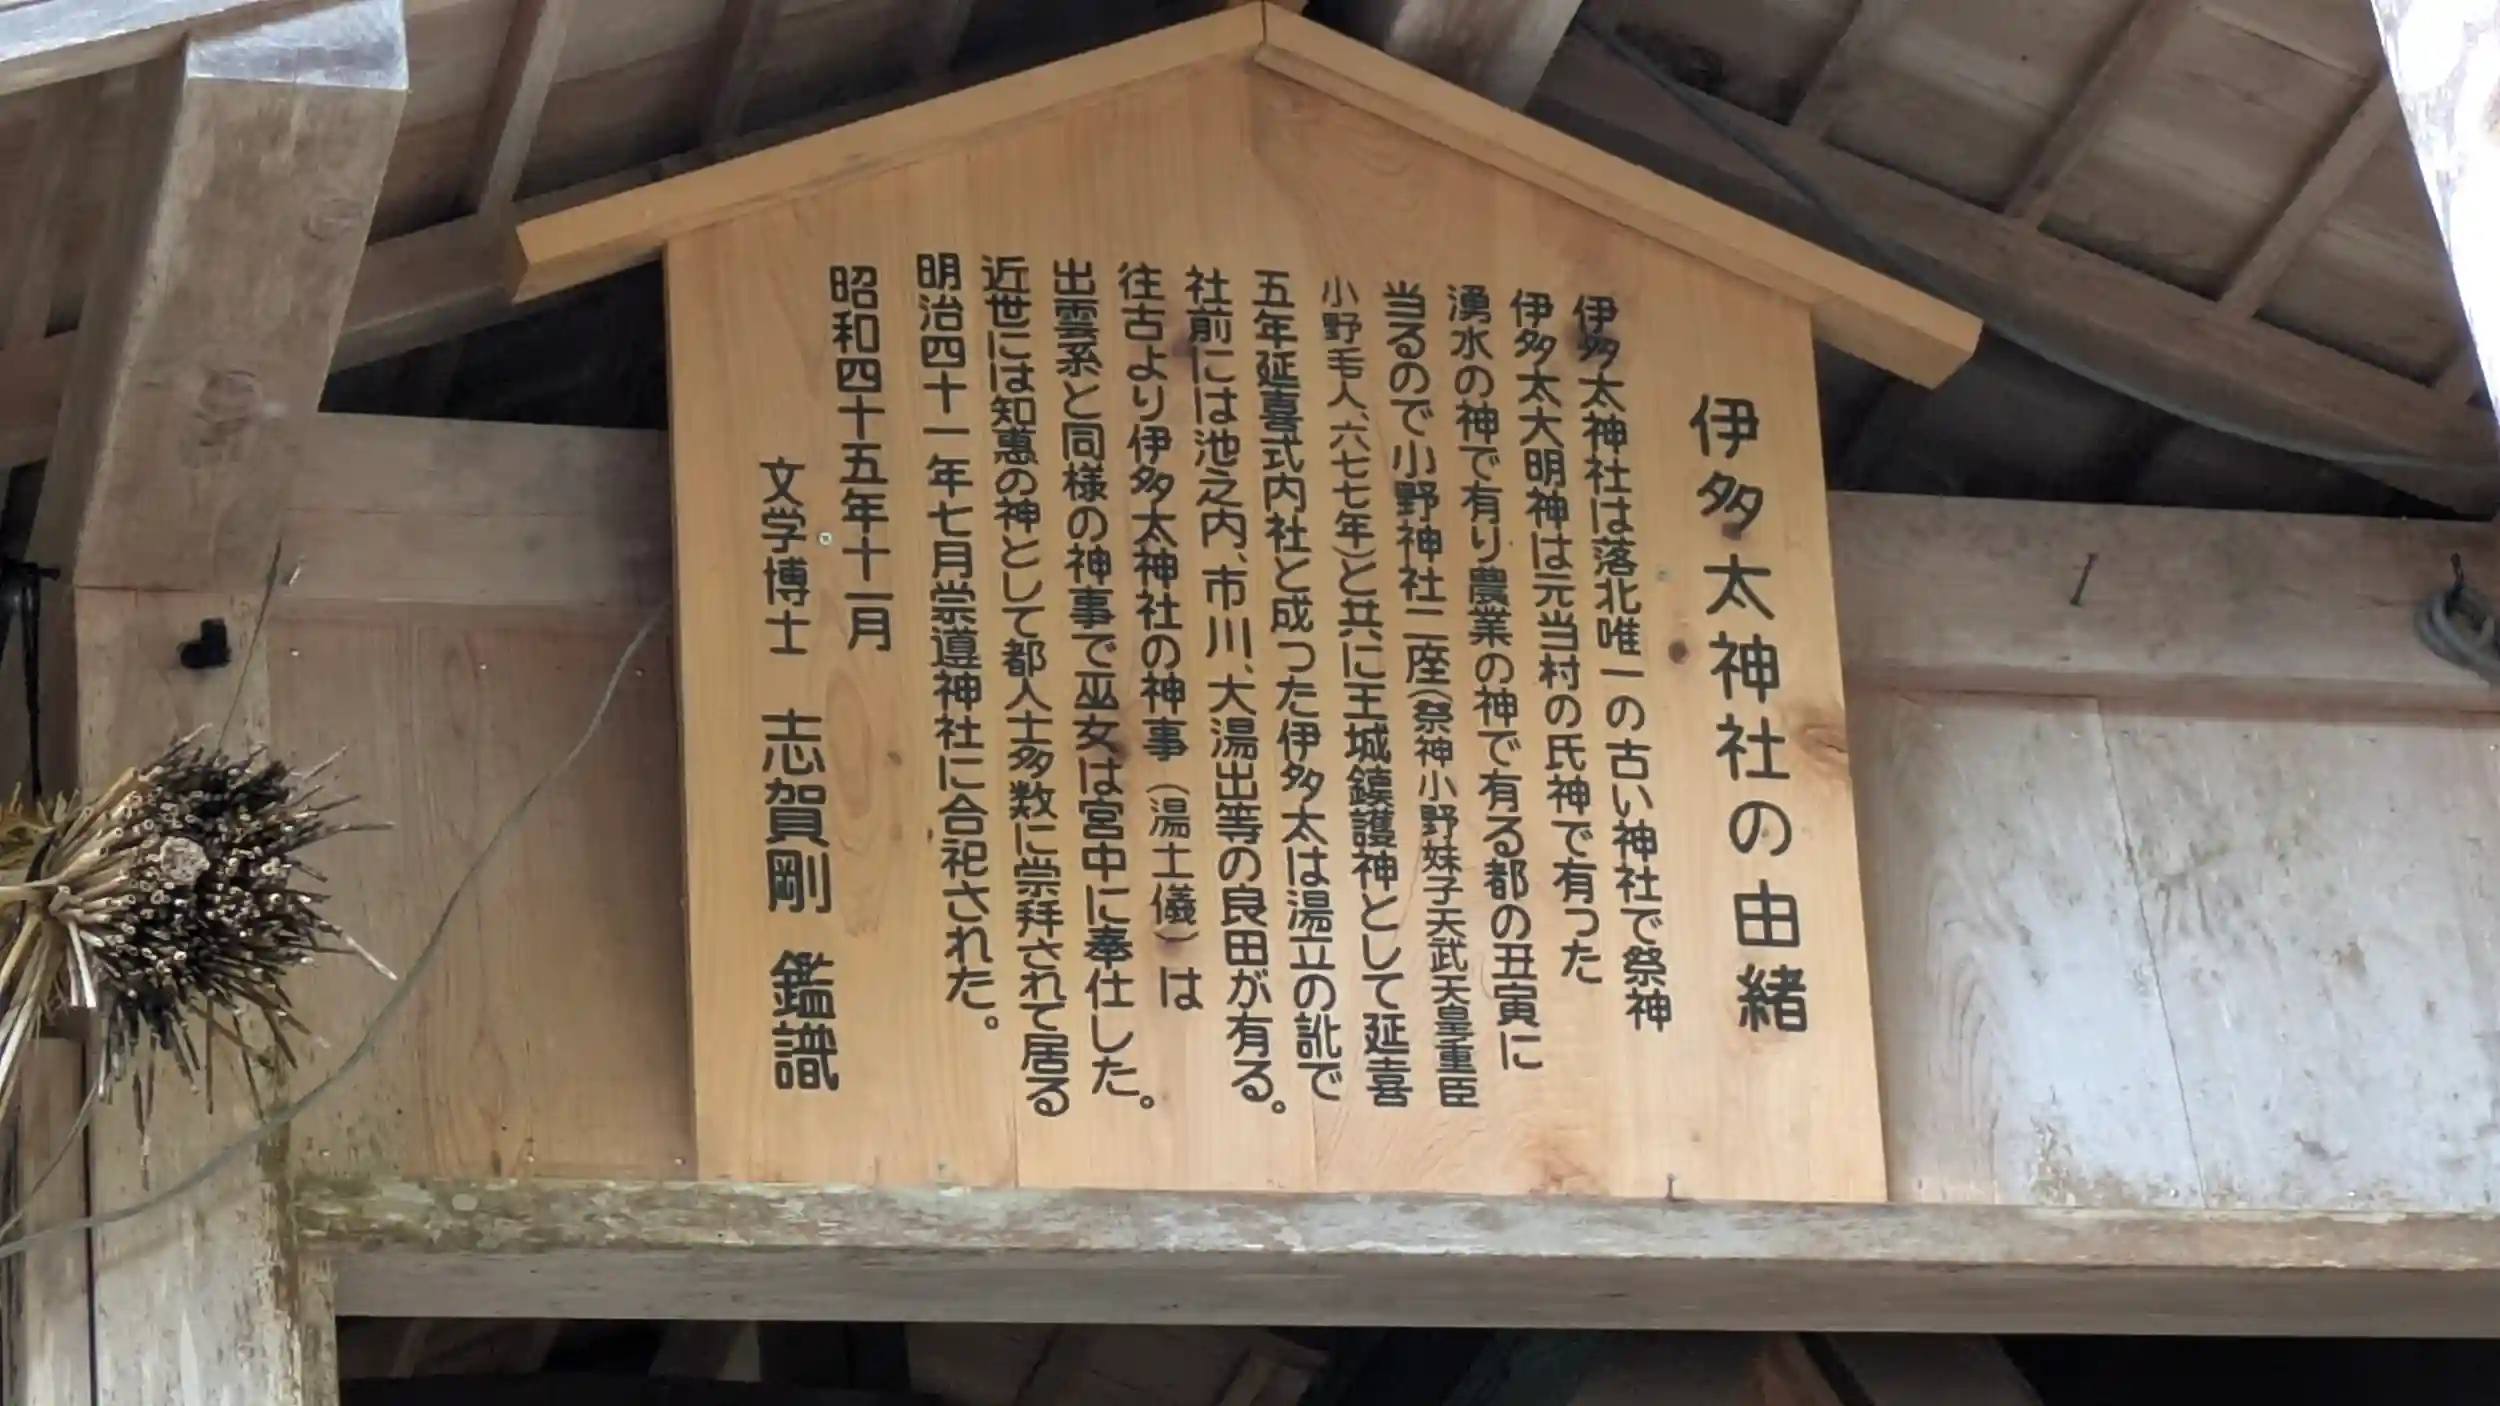 伊多太神社の由緒
伊多太神社は落北唯一の古い神社で祭神
伊多太大明神は元当村の氏神で有った
湧水の神で有り農業の神で有る都の丑寅に
当るので小野神社二座(祭神小野妹子天武天皇重臣
小野毛人、六七七年)と共に王城鎮護神として延喜
五年延喜式内社と成った伊多太は湯立の訛で
社前には池之内、市川、大湯出等の良田が有る。
往古より伊多太神社の神事(湯土儀)は
出雲系と同様の神事で巫女は宮中に奉仕した。
近世には知惠の神として都人士多数に崇拜されて居る
明治四十一年七月崇導神社に合祀された。
昭和四十五年十一月
文学博士 志賀剛 鑑識